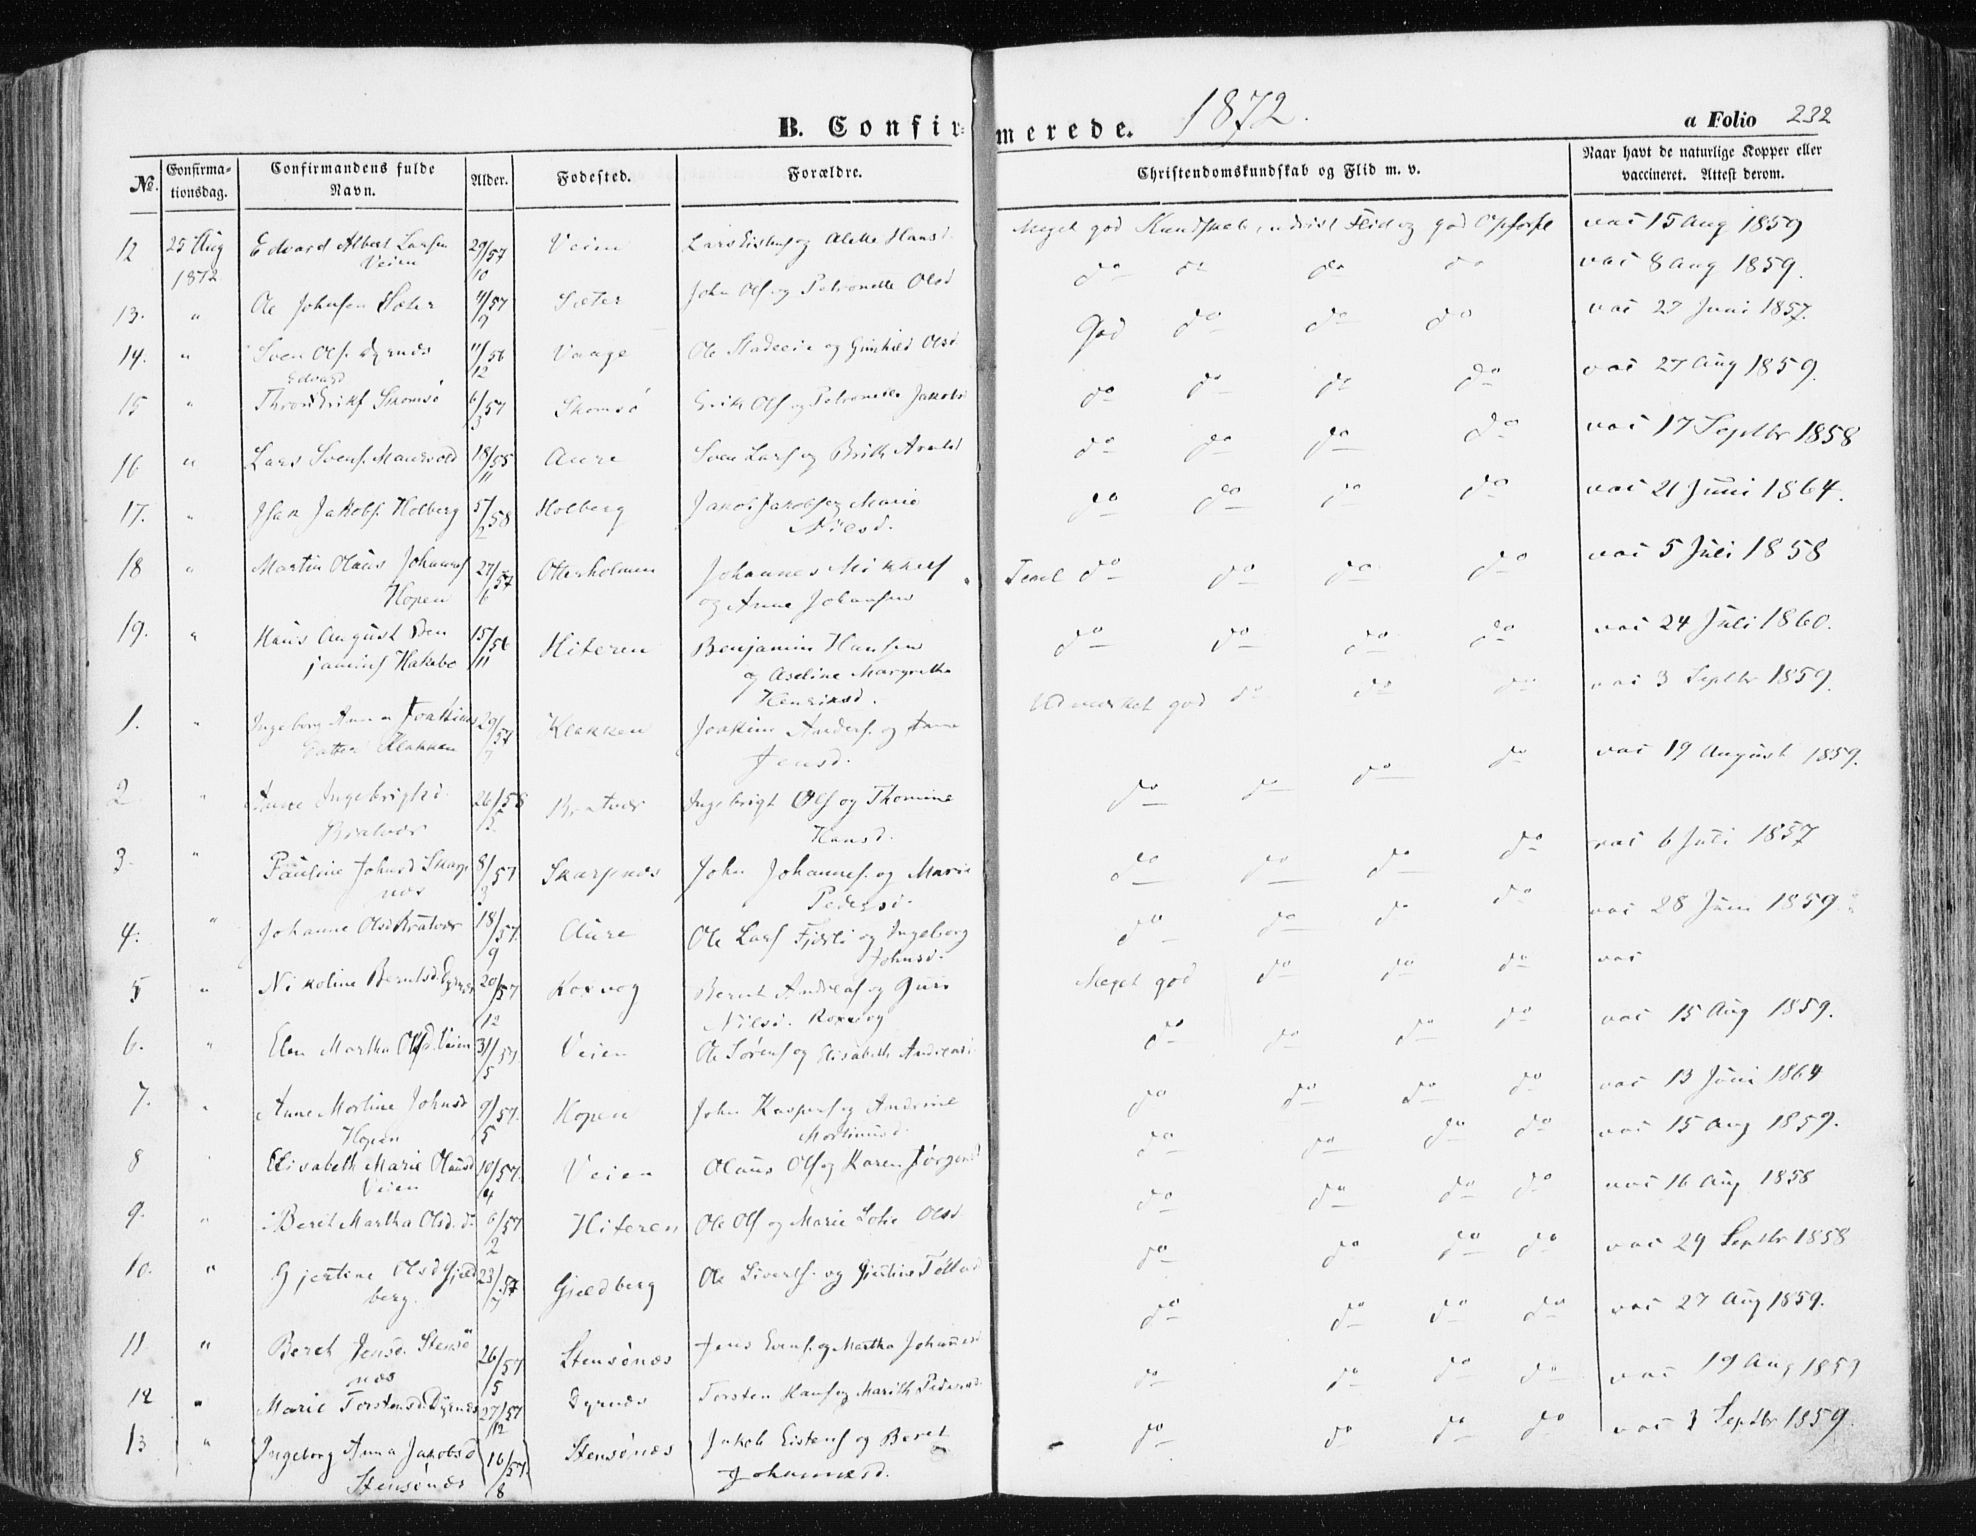 B. Confirmerede. 1872. a Folio 232
No. Confirmationsdag. Confirmandens fulde Navn. Alder. Fødested. Forældre. Christendomskundskab og Flid m. v. Naar havt de naturlige Kopper eller vaccineret. Attest derom.
12 25 Aug Edvard Albert Larsen 29/57 Veien Lars Eistens og Alette Hansd. Meget god Kundskab, udvist Flid og god Opførsl vac 15 Aug 1859
1872 Veien 10 do do do do vac 8 Aug 1859.
13. " Ole Johnsen Sæter 4/57 Sæter John Ols og Petronelle Olsd God do do do vac 27 Juni 1857.
9
14. " Sven Ols. Dyrnæs 11/56 Vaage Ole og Gunhild Olsd do do do do vac 27 Aug 1859.
Edvard 12
15 " Thron Eriks Skomsö 6/57 Skomsö Erik Ols og Petronelle Jakobsd do do do do vac 17 Septbr 1858
3
16 " Lars Svens. 18/55 Aure Sven Lars og Brith do do do do vac 21 Juni 1864.
11
17. " Isak Jakobs. Holberg 5/58 Holberg Jakob Jakobs og Marie
2 Nilsd.
18 " Martin Olaus Johannes 27/57 Otterholmen Johannes Mikkels Temel do do do do vac 5 Juli 1858
Hopen 6 og Anne Johansen
19. " Hans August Ben 15/56 Hiteren Benjamin Hansen do do do do vac 24 Juli 1860.
jamins Hakebo 11 og Aseline Margretha
Henriksd.
1. " Ingeborg Anna Joakims 29/57 Klakken Joakim Anders. og Anne Udmærket god do do do vac 3 Septbr 1859.
datter Klakken 7 Jensd.
2 " Anne Ingebrigtsd. 26/58 Bratvær Ingebrigt Ols og Thomine do do do do vac 19 August 1859.
Bratvær 5. Hansd.
3. " Pauline Johnsd Skarp 8/57 Skarpnæs John Johannes. og Marie do do do do vac 6 Juli 1857
næs 3 Pedersd.
4. " Johanne Olsd Bratvær 18/57. Aure Ole Lars Fjærli og Ingeborg do do do do vac 28 Juni 1859.
9 Johnsd.
5 " Nikoline Berntsd. Dyrnæs 20/57 Roxvog Bernt Andreas og Guri Meget god do do do vac
12 Nilsd. Roxvog
6. " Elen Martha Olsd. Veien 31/57. Veien Ole Sörens og Elisabeth Andreasd. do do do do vac 15 Aug 1859.
5
7. " Anne Mortine Johnsd 9/57. Hopen John Kaspers og Andrine do do do do vac 13 Juni 1864
Hopen 5 Mortinusd.
8 " Elisabeth Marie Olausd 10/57. Veien Olaus Ols og Karen Jörgensd do do do do vac 15 Aug 1859.
Veien 4
9. " Berit Martha Olsd. do 6/57 Hiteren Ole Ols og Marie Sofie Olsd do do do do vac 16 Aug 1858
2
10. " Gjertine Olsd Gjæld 23/57 Gjældberg Ole Siverts. og do do do do vac 29 Septbr 1858
berg. 7
11 " Beret Jensd. Stensö 26/57 Stensönæs Jens Evens. og Martha Johannesd do do do do vac 27 Aug 1859.
næs 5
12 " Marie Torstensd. Dyrnæs 27/57 Dyrnæs Torsten Hans og Marith Pedersd do do do do vac 19 Aug 1859
12
13 " Ingeborg Anna Jakobsd 16/57. Stensönæs Jakob Eistens og Beret do do do do vac 3 Septbr 1859.
Stensönæs 8 Johannesd.